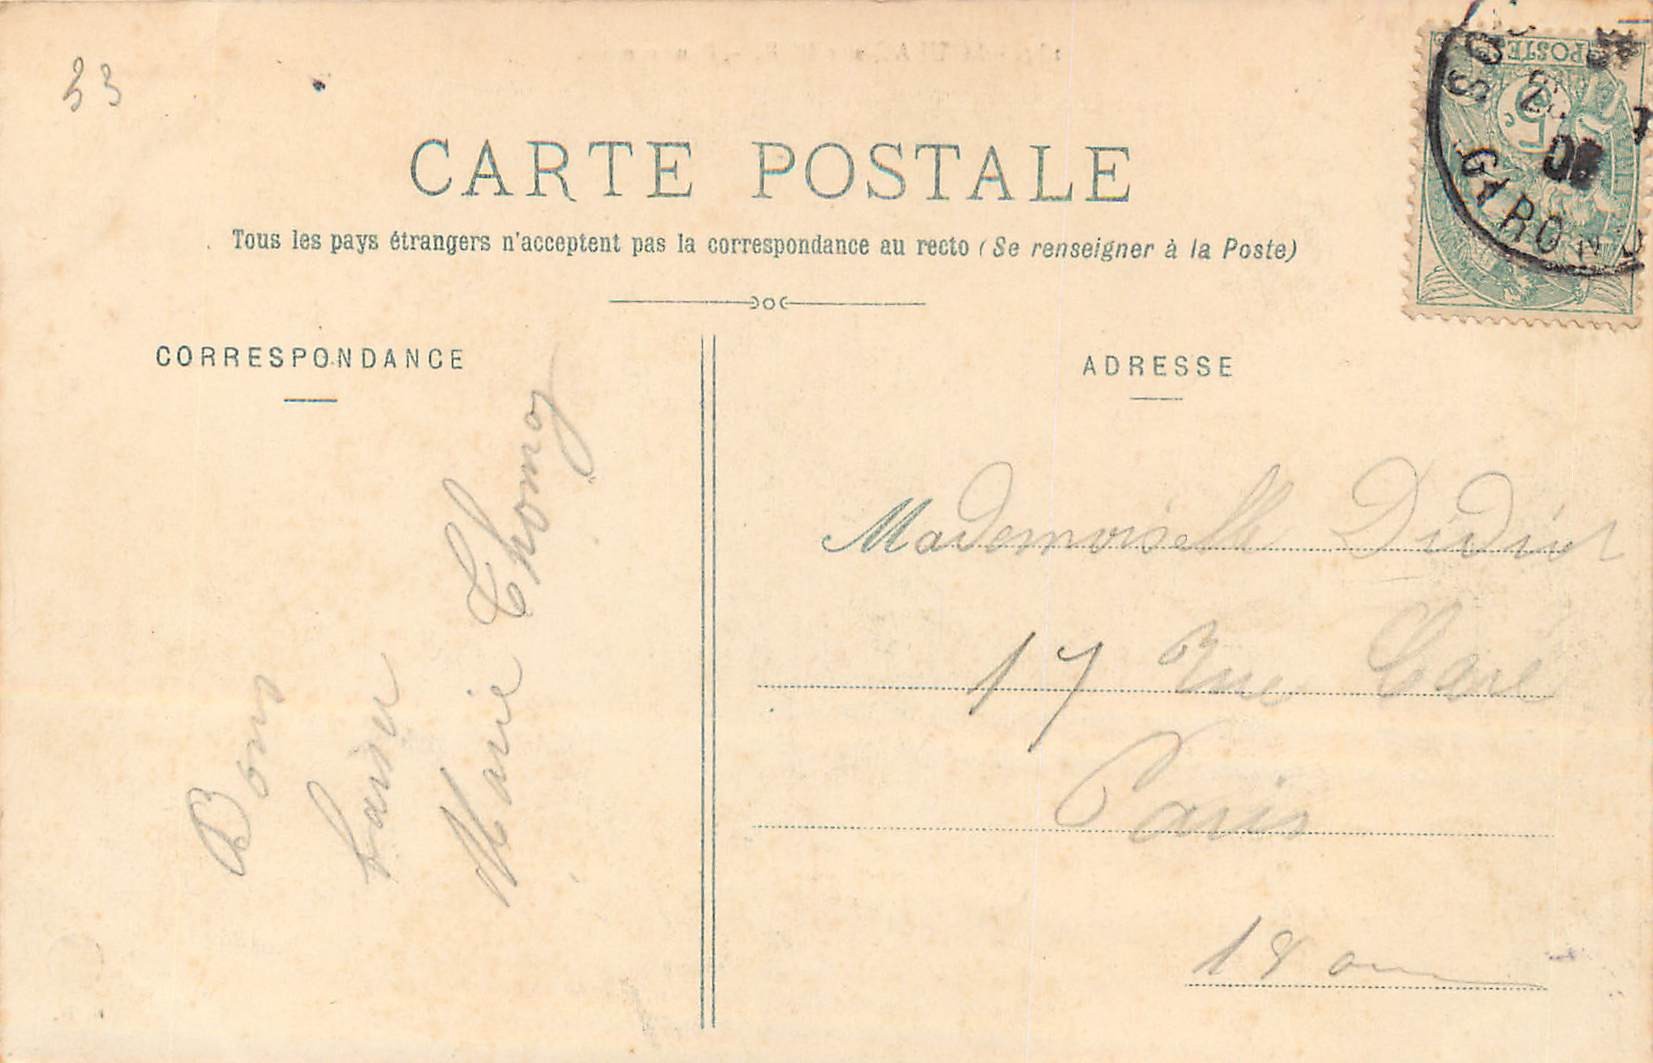 33
CARTE POSTALE
Tous les pays étrangers n'acceptent pas la correspondance au recto (Se renseigner à la Poste)
CORRESPONDANCE
ADRESSE
Bons
baiser
Marie Thomoy
Mademoiselle Didier
17 Rue
Paris
18
POSTE
5c
GIRONDE